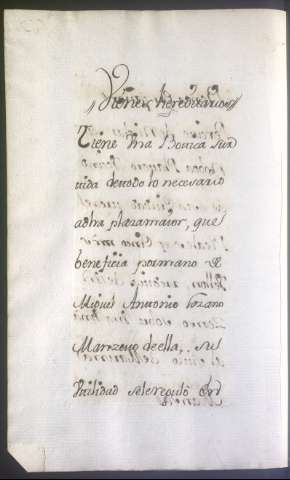 Vienes hereditarios
Tiene Una Botica Sur
tida detodo lo necesario
adha plazamaior, que
beneficia pormano de
Miguel Antonio Lozano
Manzevo deella.. su
Vutilidad seleregulò